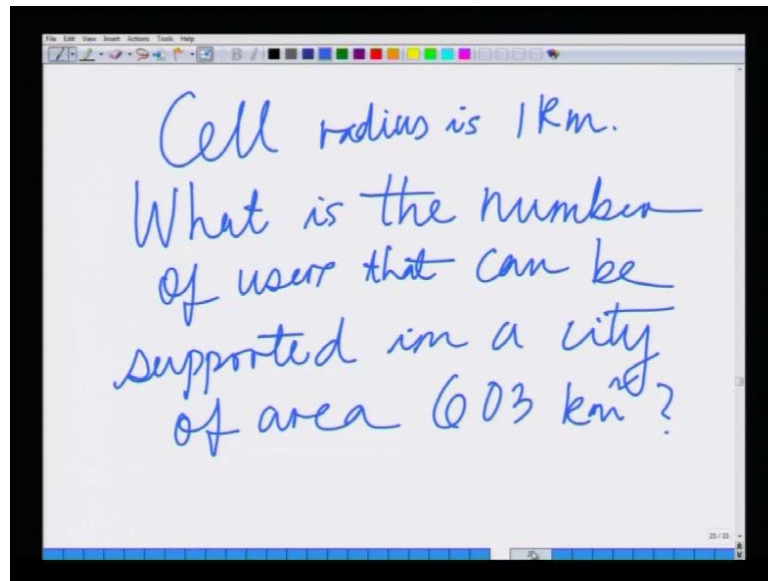 File Edit View Insert Actions Tools Help
Cell radius is 1 Km.
What is the number
of users that can be
supported in a city
of area 603 km²?
23/33